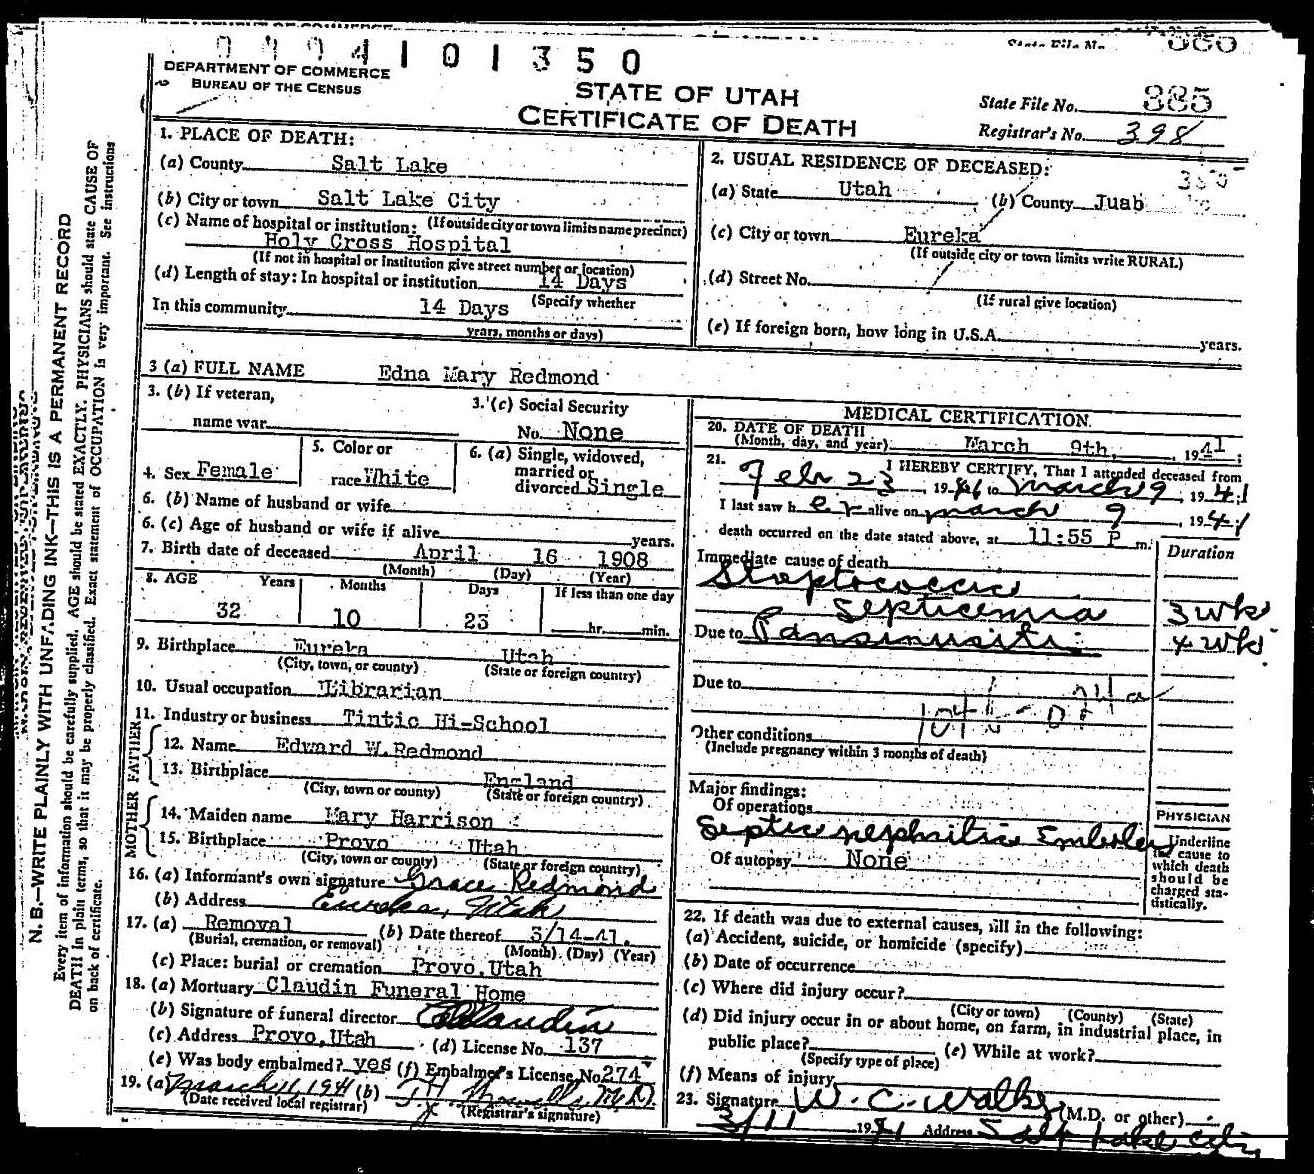 0994101350
DEPARTMENT OF COMMERCE
BUREAU OF THE CENSUS
STATE OF UTAH
CERTIFICATE OF DEATH
State File No. 385
Registrar's No. 398
N. B.—WRITE PLAINLY WITH UNFADING INK—THIS IS A PERMANENT RECORD
Every item of information should be carefully supplied. AGE should be stated EXACTLY. PHYSICIANS should state CAUSE OF
DEATH in plain terms, so that it may be properly classified. Exact statement of OCCUPATION is very important. See instructions
on back of certificate.
1. PLACE OF DEATH:
(a) County Salt Lake
(b) City or town Salt Lake City
(c) Name of hospital or institution: (If outside city or town limits name precinct)
Holy Cross Hospital
(If not in hospital or institution give street number or location)
(d) Length of stay: In hospital or institution 14 Days
(Specify whether
In this community 14 Days
years, months or days)
2. USUAL RESIDENCE OF DECEASED:
(a) State Utah (b) County Juab
(c) City or town Eureka
(If outside city or town limits write RURAL)
(d) Street No.
(If rural give location)
(e) If foreign born, how long in U.S.A. years.
3 (a) FULL NAME Edna Mary Redmond
3. (b) If veteran,
name war
3. (c) Social Security
No. None
4. Sex Female
5. Color or
race White
6. (a) Single, widowed,
married or
divorced Single
6. (b) Name of husband or wife
6. (c) Age of husband or wife if alive years.
7. Birth date of deceased April 16 1908
(Month) (Day) (Year)
8. AGE Years Months Days If less than one day
32 10 23 hr. min.
9. Birthplace Eureka Utah
(City, town, or county) (State or foreign country)
10. Usual occupation Librarian
11. Industry or business Tintic Hi-School
FATHER
12. Name Edward W. Redmond
13. Birthplace England
(City, town or county) (State or foreign country)
MOTHER
14. Maiden name Mary Harrison
15. Birthplace Provo Utah
(City, town or county) (State or foreign country)
16. (a) Informant's own signature Grace Redmond
(b) Address Eureka, Utah
17. (a) Removal (b) Date thereof 3/14-41.
(Burial, cremation, or removal) (Month) (Day) (Year)
(c) Place: burial or cremation Provo, Utah
18. (a) Mortuary Claudin Funeral Home
(b) Signature of funeral director Claudin
(c) Address Provo, Utah (d) License No. 137
(e) Was body embalmed? yes (f) Embalmer's License No. 274
19. (a) March 11, 1941 (b) M.D.
(Date received local registrar) (Registrar's signature)
MEDICAL CERTIFICATION
20. DATE OF DEATH
(Month, day, and year) March 9th, 1941;
21. I HEREBY CERTIFY, That I attended deceased from
Feb 23, 19 to March 9, 1941
I last saw her alive on march 9, 1941
death occurred on the date stated above, at 11:55 P m.
Immediate cause of death Duration
Streptococcic
Septicemia 3 wk
Due to Pansinusitis 4 wk
Due to
Other conditions
(Include pregnancy within 3 months of death)
Major findings:
Of operations
Septic nephritic
Of autopsy None
PHYSICIAN
Underline
the cause to
which death
should be
charged sta-
tistically.
22. If death was due to external causes, fill in the following:
(a) Accident, suicide, or homicide (specify)
(b) Date of occurrence
(c) Where did injury occur?
(City or town) (County) (State)
(d) Did injury occur in or about home, on farm, in industrial place, in
public place? (e) While at work?
(Specify type of place)
(f) Means of injury
23. Signature W. C. Walker (M.D. or other)
3/11 1941 Address Salt Lake City